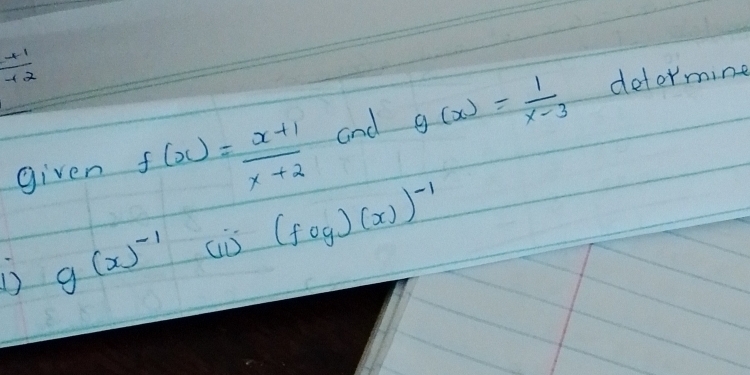 +1
+2
given f(x) = x+1/x+2 and g(x) = 1/x-3 determine
i) g(x)^-1 (ii) (fog)(x))^-1